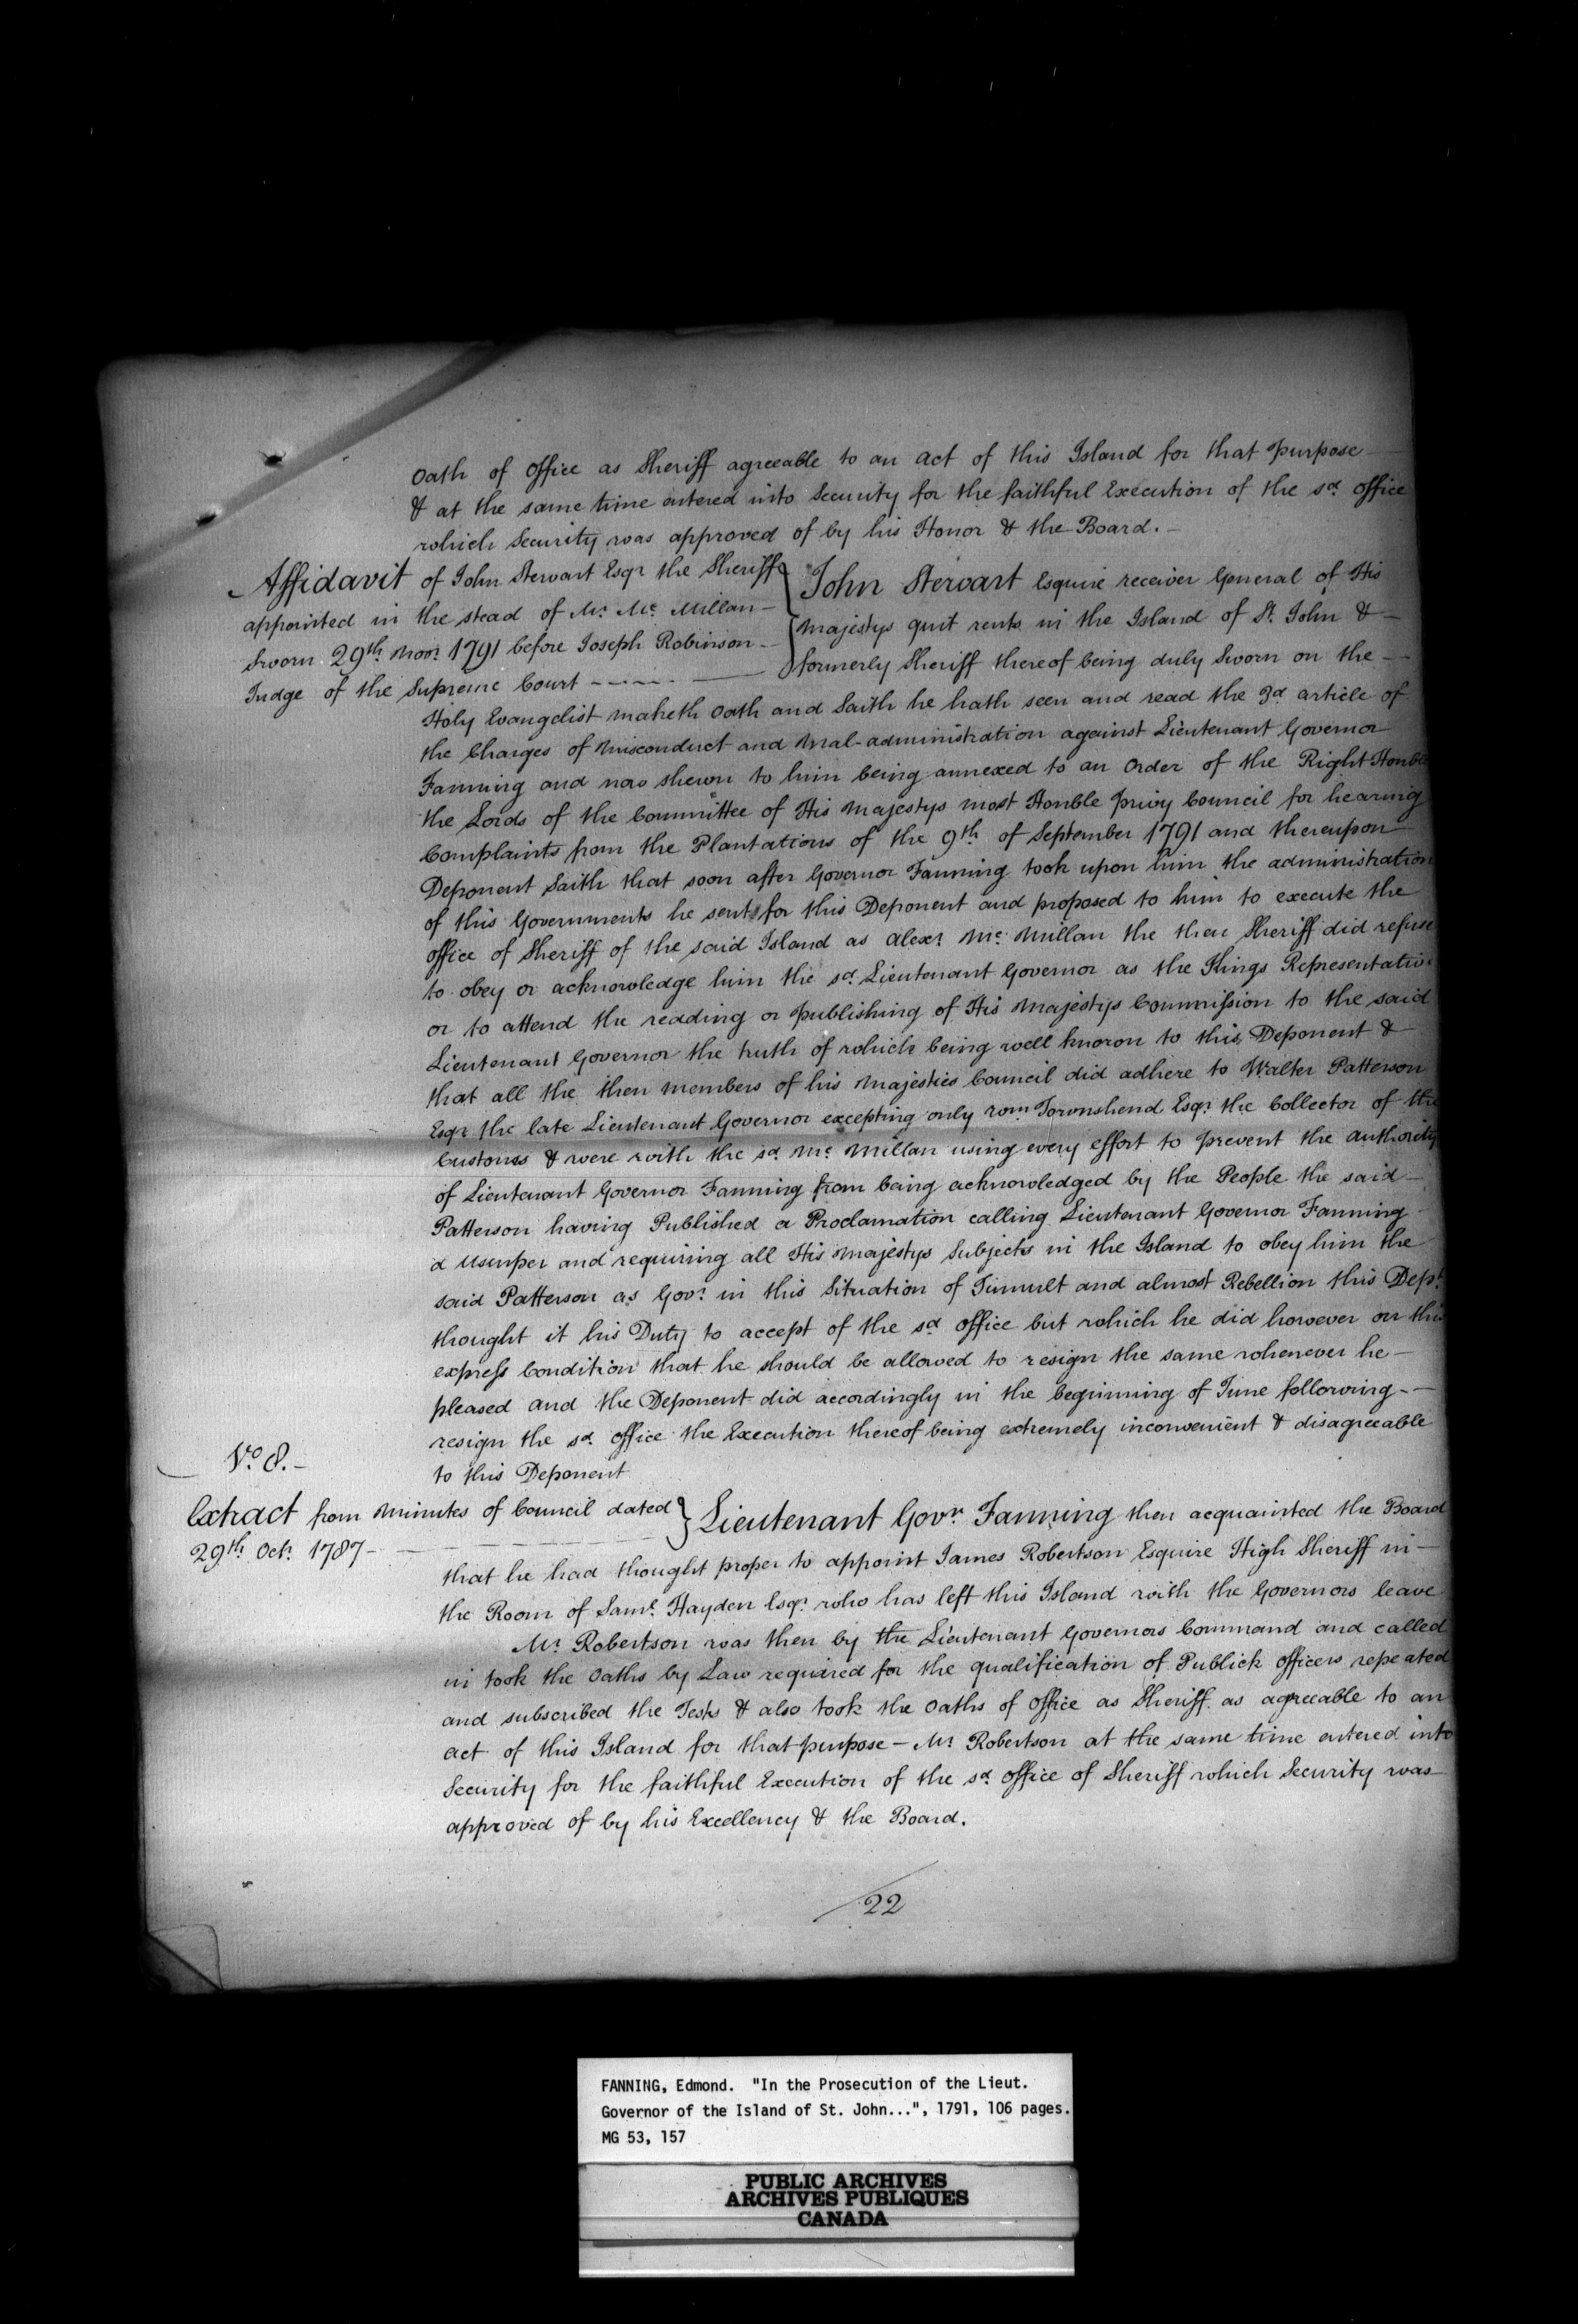 Oath of Office as Sheriff agreeable to an act of this Island for that purpose
& at the same time entered into Security for the faithful Execution of the sd. office
which Security was approved of by his Honor & the Board. -
Affidavit of John Stewart Esqr the Sheriff
appointed in the stead of Mr. Mc Millan -
Sworn 29th Novr. 1791 before Joseph Robinson -
Judge of the Supreme Court
John Stewart Esquire receiver General of His
Majestys quit rents in the Island of St. John & -
formerly Sheriff thereof being duly Sworn on the -
Holy Evangelist maketh Oath and Saith he hath seen and read the 3d. article of
the Charges of Misconduct and Mal-administration against Lieutenant Governor
Fanning and now shewn to him being annexed to an Order of the Right Honble
the Lords of the Committee of His Majestys most Honble privy Council for hearing
Complaints from the Plantations of the 9th of September 1791 and thereupon
Deponent Saith that soon after Governor Fanning took upon him the administration
of this Governments he sent for this Deponent and proposed to him to execute the
office of Sheriff of the said Island as Alexr. Mc. Millan the then Sheriff did refuse
to obey or acknowledge him the sd. Lieutenant Governor as the Kings Representative
or to attend the reading or publishing of His Majestys Commission to the said
Lieutenant Governor the truth of which being well known to this Deponent &
that all the then members of his Majesties Council did adhere to Walter Patterson
Esqr. the late Lieutenant Governor excepting only Wm. Townshend Esqr. the Collector of the
Customs & were with the sd. Mc. Millan using every effort to prevent the authority
of Lieutenant Governor Fanning from being acknowledged by the People the said -
Patterson having Published a Proclamation calling Lieutenant Governor Fanning
a Usurper and requiring all His Majestys Subjects in the Island to obey him the
said Patterson as Govr. in this Situation of Tumult and almost Rebellion this Dept.
thought it his Duty to accept of the sd. office but which he did however on this
express Condition that he should be allowed to resign the same whenever he -
pleased and the Deponent did accordingly in the beginning of June following -
resign the sd. office the Execution thereof being extremely inconvenient & disagreeable
to this Deponent
No. 8. -
Extract from Minutes of Council dated
29th. Octr. 1787 -
Lieutenant Govr. Fanning then acquainted the Board
that he had thought proper to appoint James Robertson Esquire High Sheriff in -
the Room of Saml. Hayden Esqr. who has left this Island with the Governors leave
Mr. Robertson was then by the Lieutenant Governors Command and called
in took the Oaths by Law required for the qualification of Publick officers repeated
and subscribed the Tests & also took the Oaths of Office as Sheriff as agreeable to an
act of this Island for that purpose - Mr. Robertson at the same time entered into
Security for the faithful Execution of the sd. office of Sheriff which Security was
approved of by his Excellency & the Board.
22
FANNING, Edmond. "In the Prosecution of the Lieut.
Governor of the Island of St. John...", 1791, 106 pages.
MG 53, 157
PUBLIC ARCHIVES
ARCHIVES PUBLIQUES
CANADA